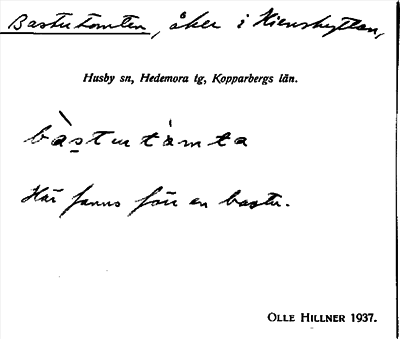 Bastutomten, åker i Hienshyttan,
Husby sn, Hedemora tg, Kopparbergs län.
bàs̱tutàmta
Här fanns förr en bastu.
OLLE HILLNER 1937.